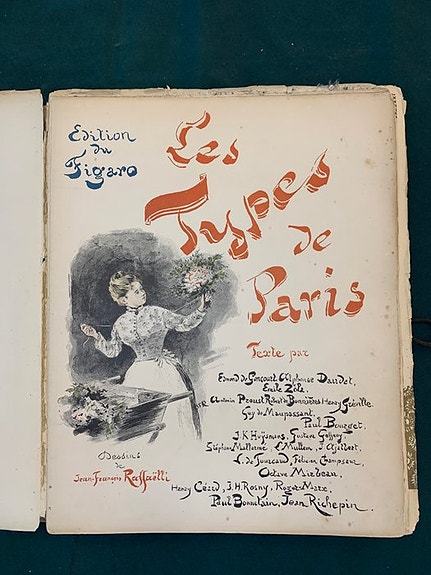 Edition
du
Figaro
Les
Types
de
Paris
Texte par
Edmond de Goncourt Alphonse Daudet,
Emile Zola,
Antonin Proust Robert de Bonnières Henry Gréville
Guy de Maupassant.
Paul Bourget,
J. K. Huysmans, Gustave Geffroy
Stéphane Mallarmé, L. Mullem, J. Ajalbert
L. de Fourcaud, Félicien Champsaur,
Octave Mirbeau,
Henry Céard, J. H. Rosny, Roger-Marx
Paul Bonnetain, Jean Richepin.
Dessins
de
Jean-François Raffaëlli